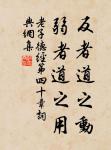 反者道之動
弱者道之用
老子道德經第四十章詞
典網集